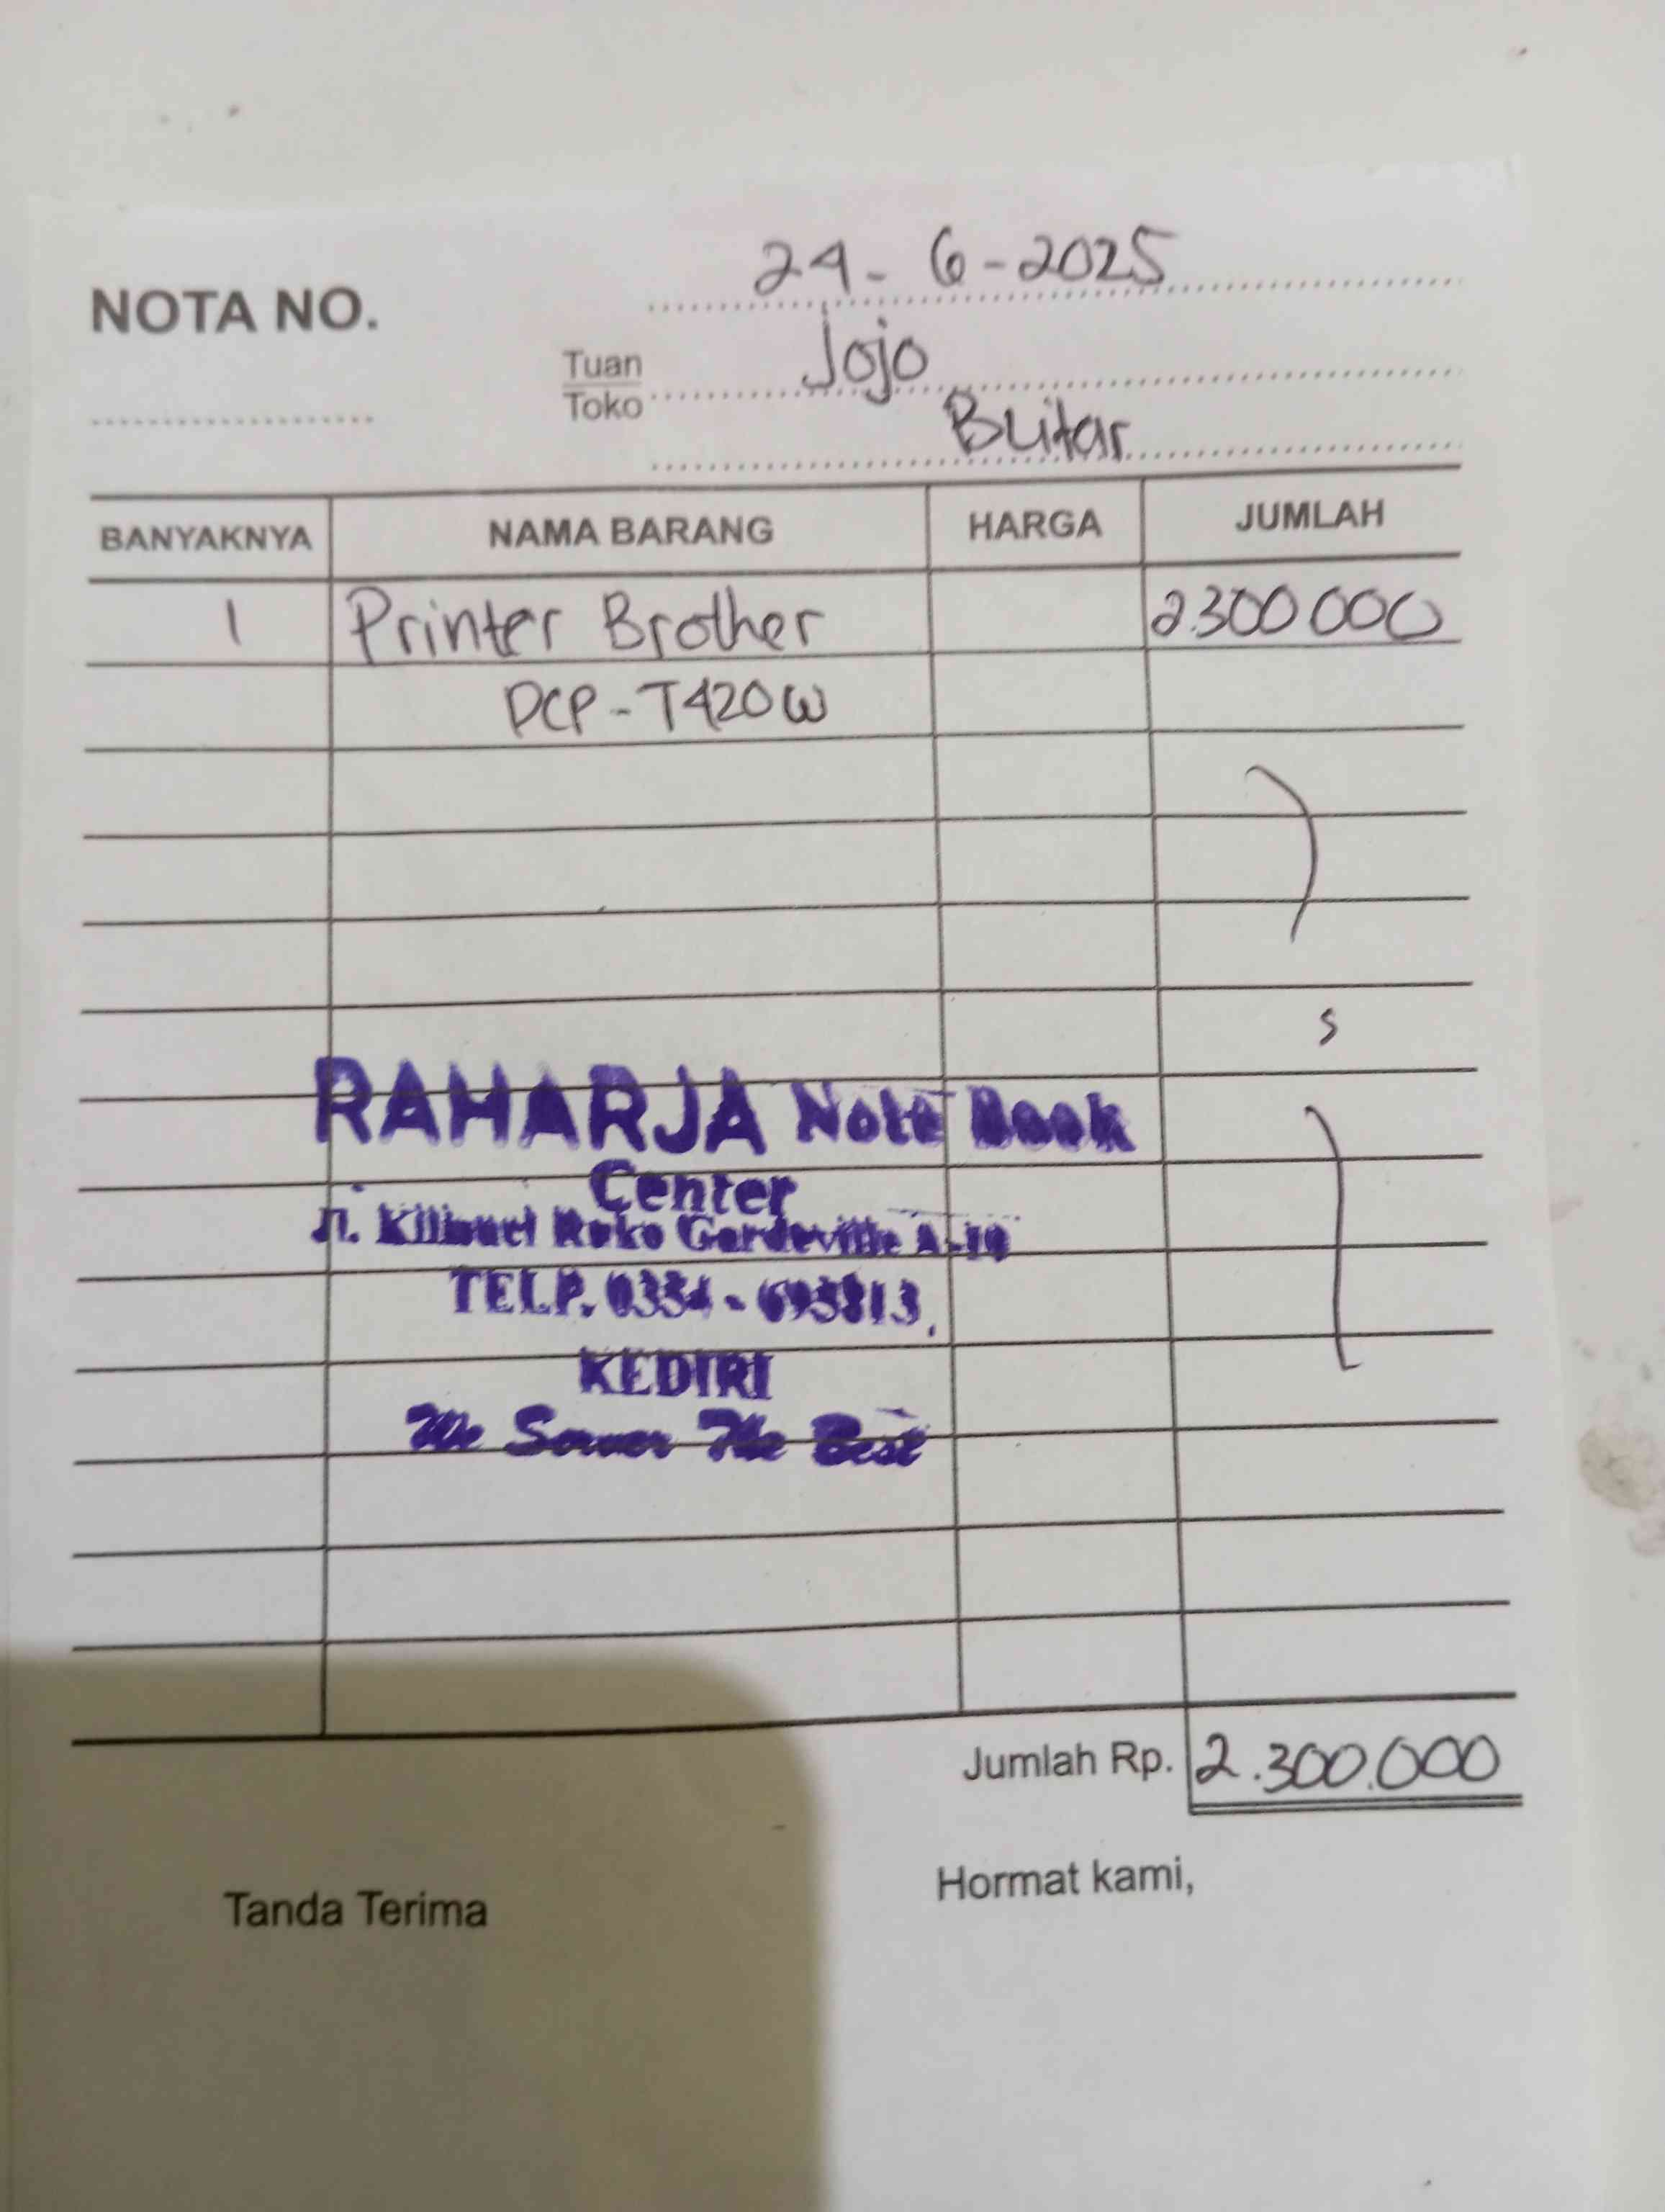 24 - 6 - 2025
NOTA NO.
Tuan Jojo
Toko
Blitar
BANYAKNYA NAMA BARANG HARGA JUMLAH
1 Printer Brother 2.300 000
DCP - T420W
RAHARJA Note Book
Center
Jl. Ruko A-10
TELP.
KEDIRI
We The Best
Jumlah Rp. 2.300.000
Hormat kami,
Tanda Terima